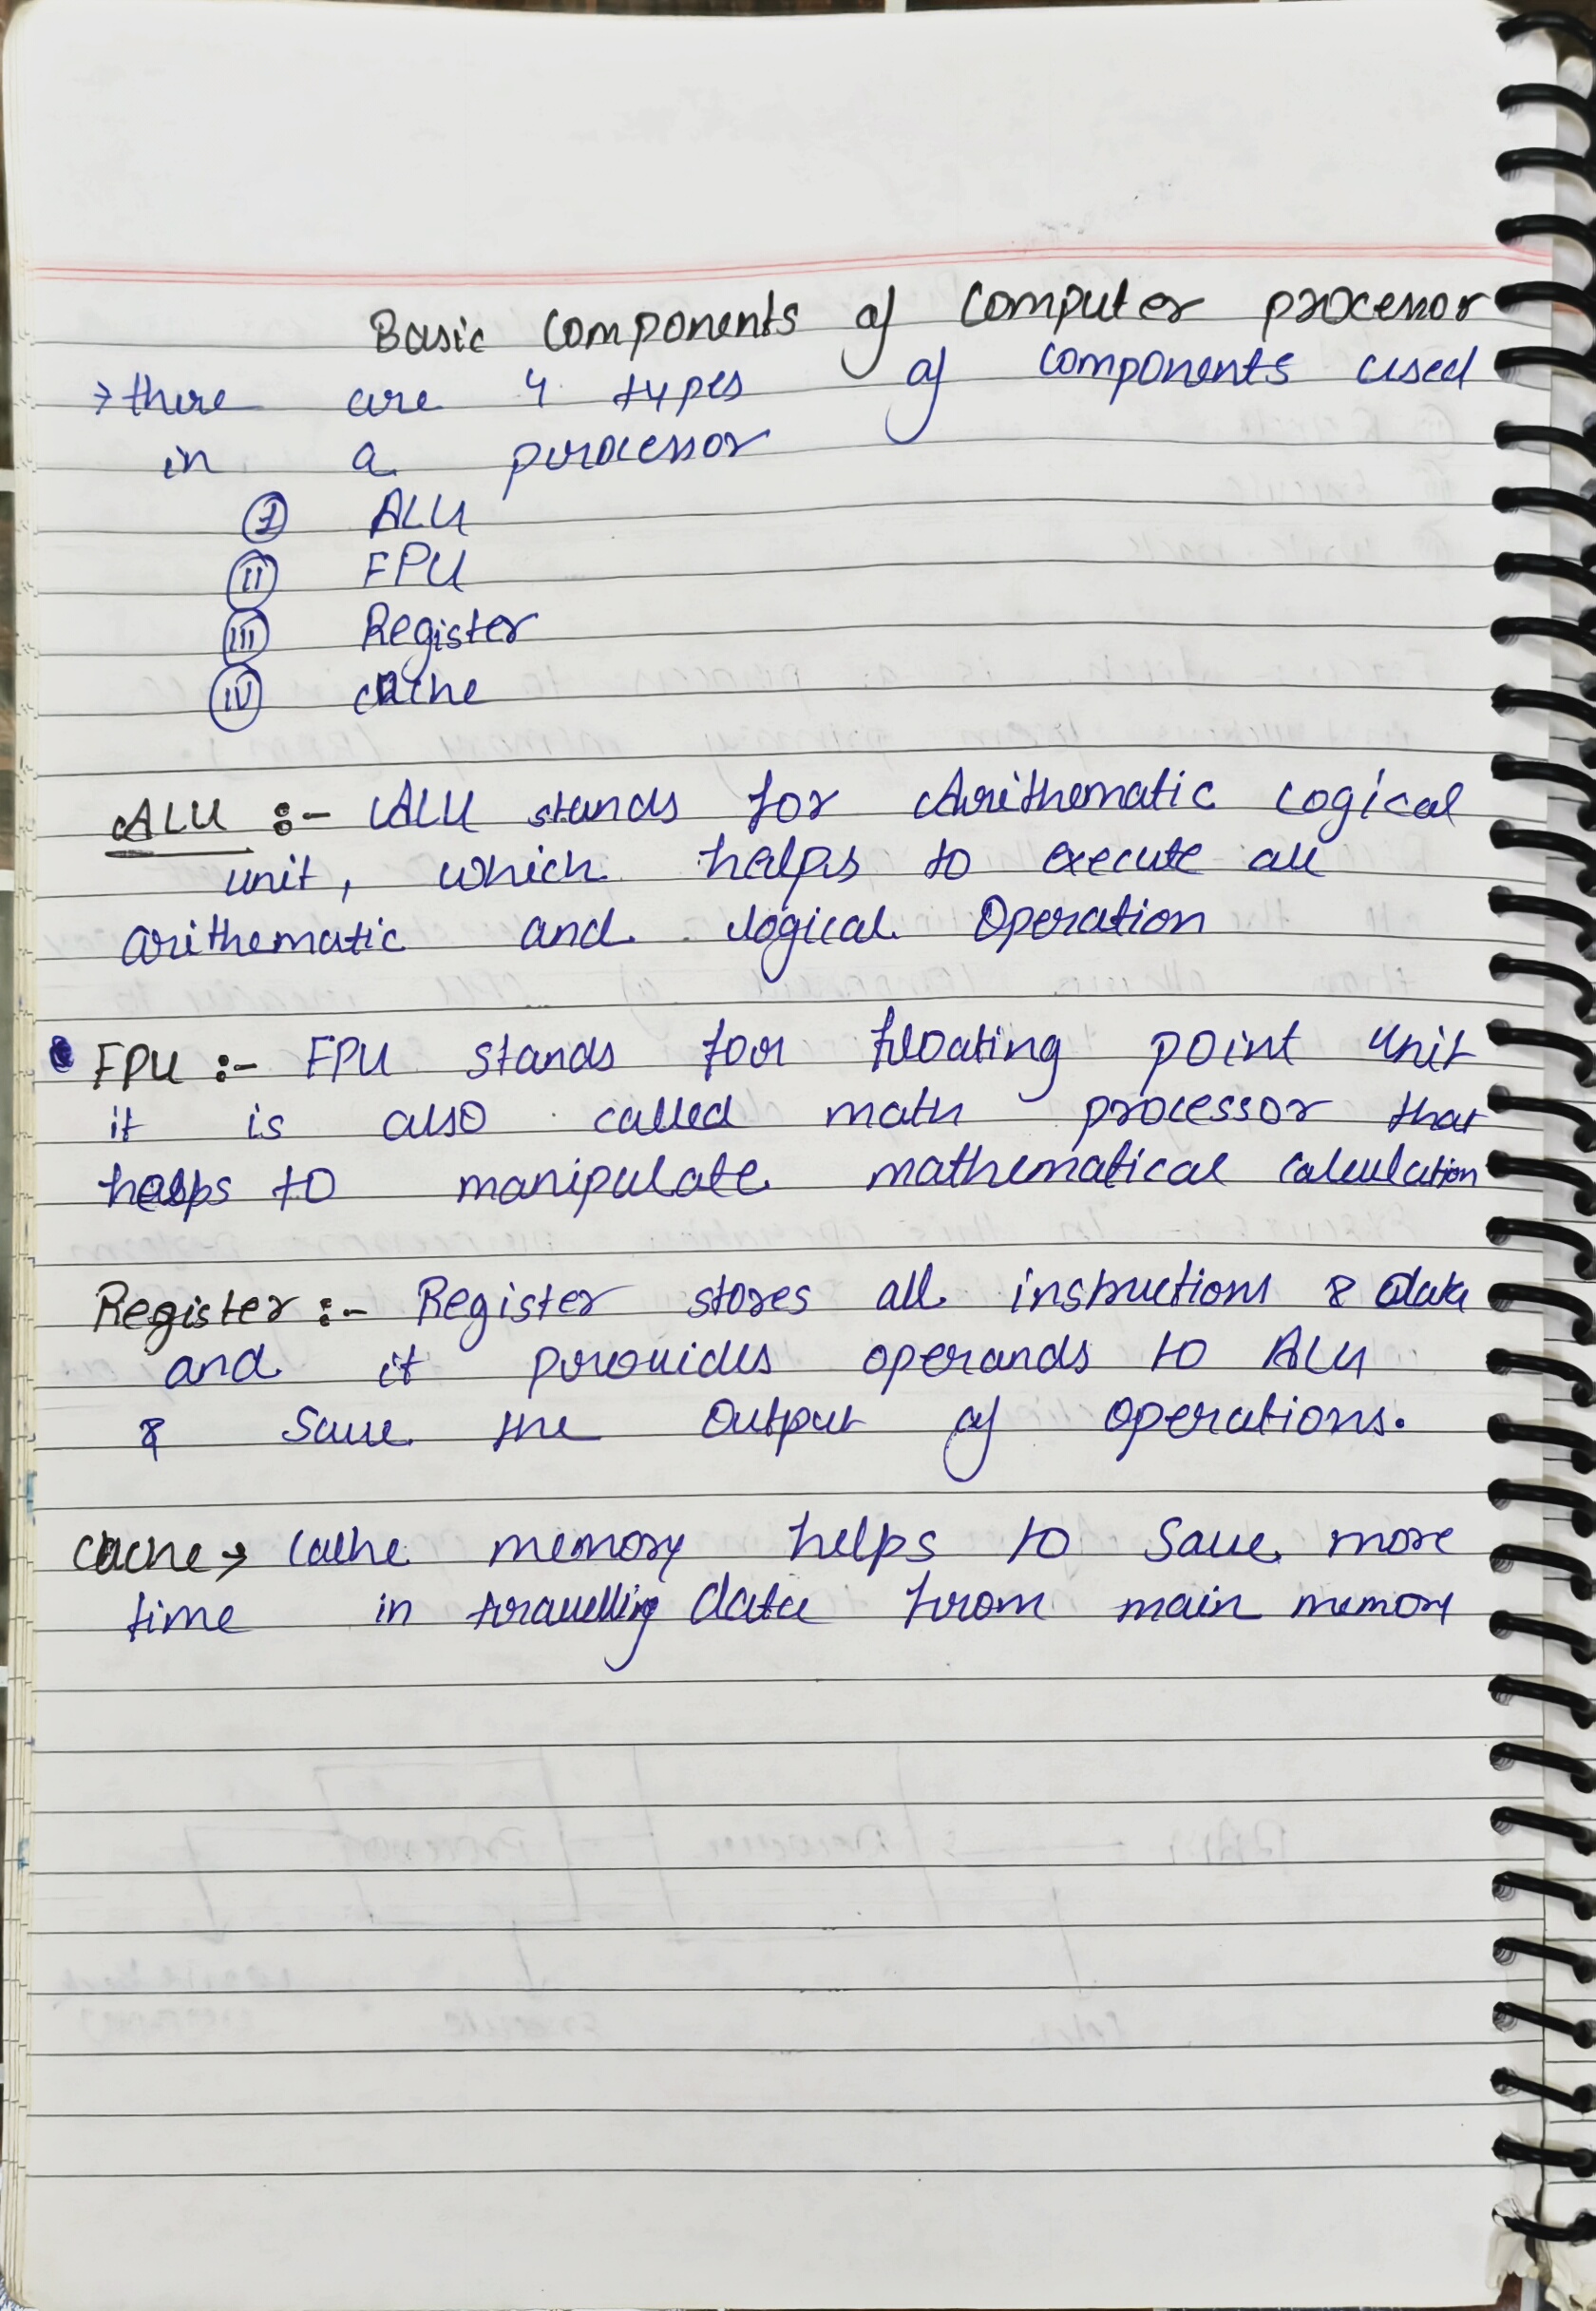 Basic Components of Computer processor
→ there are 4 types of components used
in a processor
I ALU
II FPU
III Register
IV cache
ALU :- ALU stands for Arithematic Logical
unit, which helps to execute all
arithematic and logical Operation
FPU :- FPU stands for floating point unit
it is also called math processor that
helps to manipulate mathematical calculation
Register :- Register stores all instructions & data
and it provides operands to ALU
& save the Output of operations.
cache → cache memory helps to save more
time in travelling data from main memory